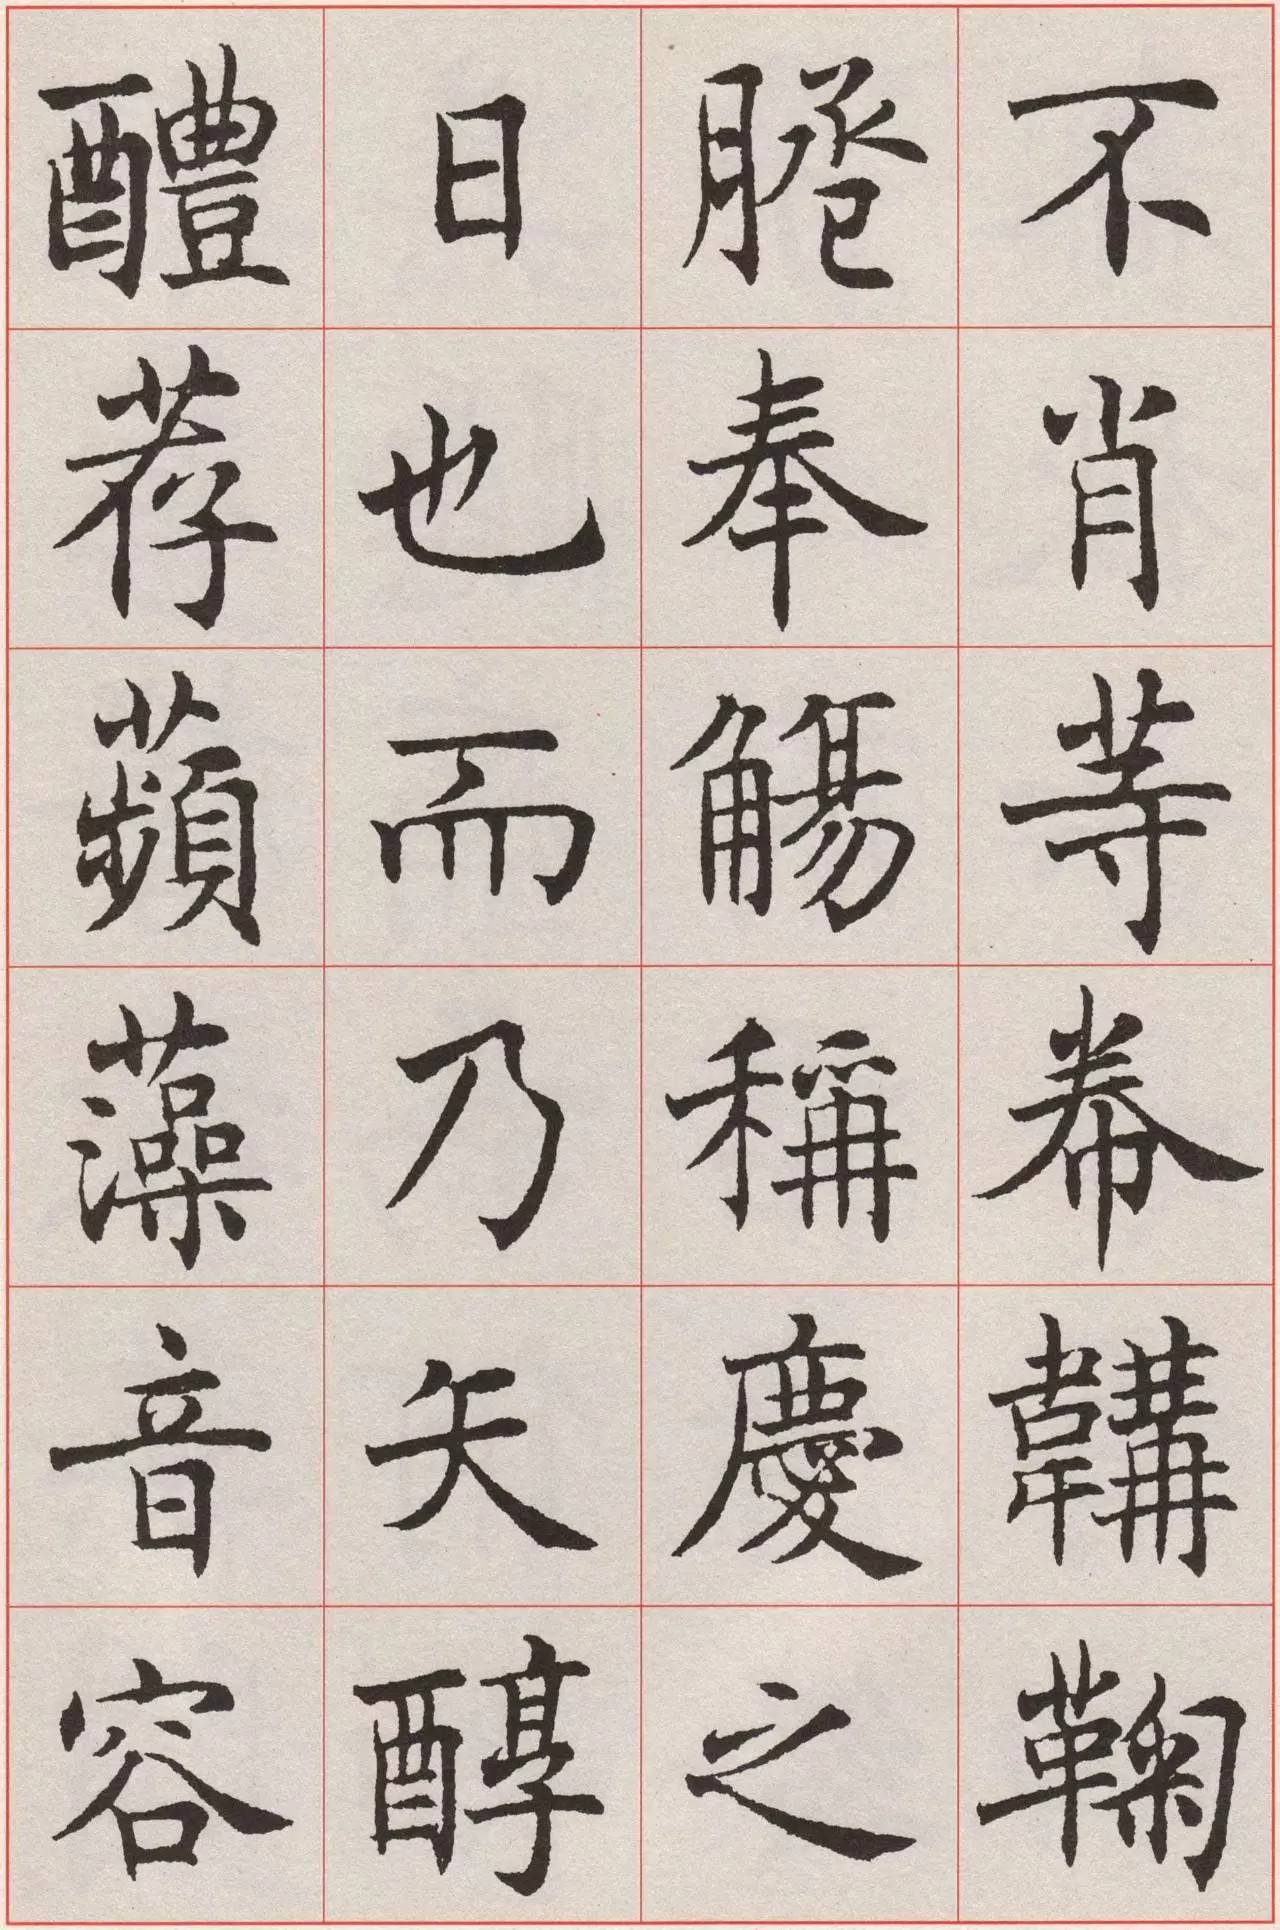 不肖等帣韝鞠
䠂奉觴稱慶之
日也而乃矢醇
醴荐蘋藻音容